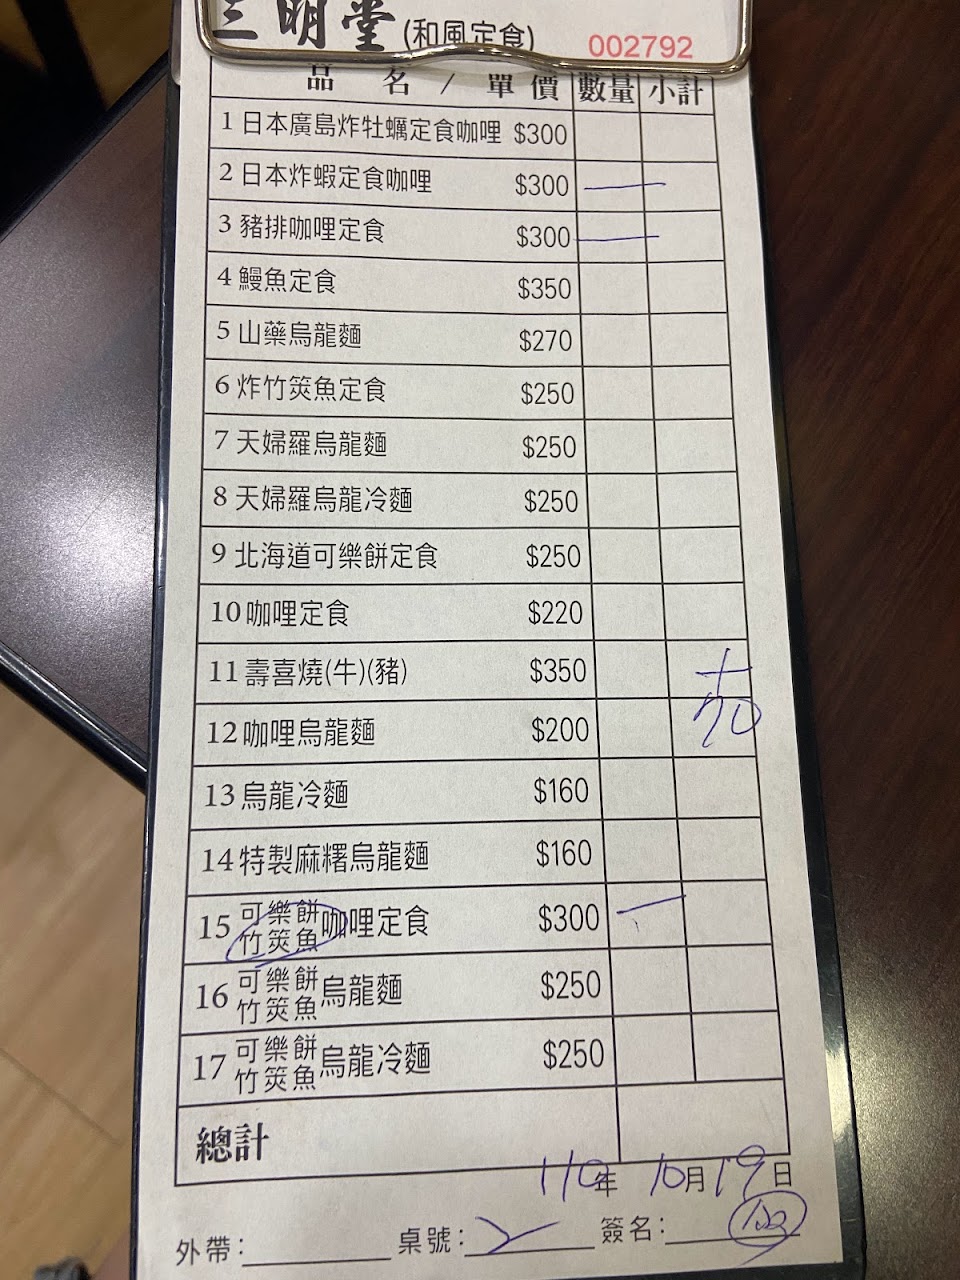 三明堂(和風定食) 002792
品名/單價 數量 小計
1 日本廣島炸牡蠣定食咖哩 $300
2 日本炸蝦定食咖哩 $300 一
3 豬排咖哩定食 $300 一
4 鰻魚定食 $350
5 山藥烏龍麵 $270
6 炸竹筴魚定食 $250
7 天婦羅烏龍麵 $250
8 天婦羅烏龍冷麵 $250
9 北海道可樂餅定食 $250
10 咖哩定食 $220
11 壽喜燒(牛)(豬) $350
12 咖哩烏龍麵 $200
13 烏龍冷麵 $160
14 特製麻糬烏龍麵 $160
15 可樂餅 竹筴魚 咖哩定食 $300 一
16 可樂餅 竹筴魚 烏龍麵 $250
17 可樂餅 竹筴魚 烏龍冷麵 $250
總計
110年 10月19日
外帶: 桌號: 簽名: